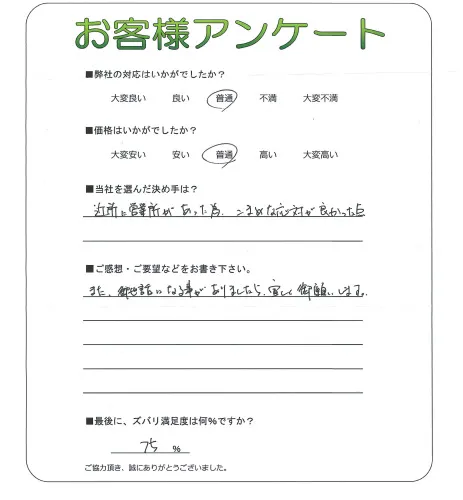 お客様アンケート
■弊社の対応はいかがでしたか？
大変良い 良い 普通 不満 大変不満
■価格はいかがでしたか？
大変安い 安い 普通 高い 大変高い
■当社を選んだ決め手は？
近所に営業所があった為、こまめな応対が良かった点
■ご感想・ご要望などをお書き下さい。
また、御世話になる事がありましたら、宜しく御願いします。
■最後に、ズバリ満足度は何％ですか？
75 ％
ご協力頂き、誠にありがとうございました。